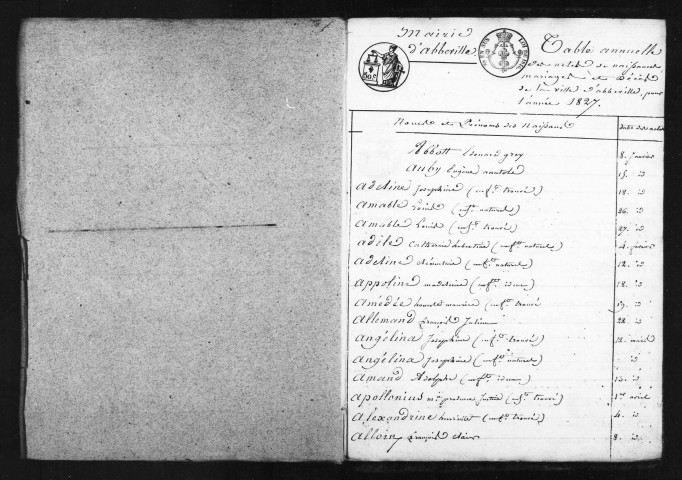 Mairie
d'abbeville
50c
Table annuelle
Des actes de naissances
mariages et Décès
de la ville d'abbeville, pour
l'année 1827.
Noms et Prénoms des Naissances
Dates des actes
Abbott Edouard grey 8. janvier
Auby Eugène anatole 15. id
adeline Josephine (enft. trouvé) 18. id
amable Louis (enft. naturel) 26. id
amable Louis (enft. trouvé) 27. id
adèle Catherine (enft. naturel) 4. février
adeline clémentine (enft. naturel) 12. id
appoline madeleine (enft. idem) 18. id
amédée (enft. trouvé 19. id
allemand françois Julien 22. id
angélina Josephine (enft. trouvé) 12. mars
angélina Josephine (enft. naturel) id
amand Adolphe (enft. idem) 13. id
apollonius (enft. trouvé) 1er avril
alexandrine henriette (enft. trouvé) 4. id
alloin, françois 8. id